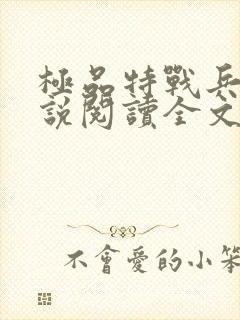 極品特戰兵
說閱讀全文
不會愛的小笨